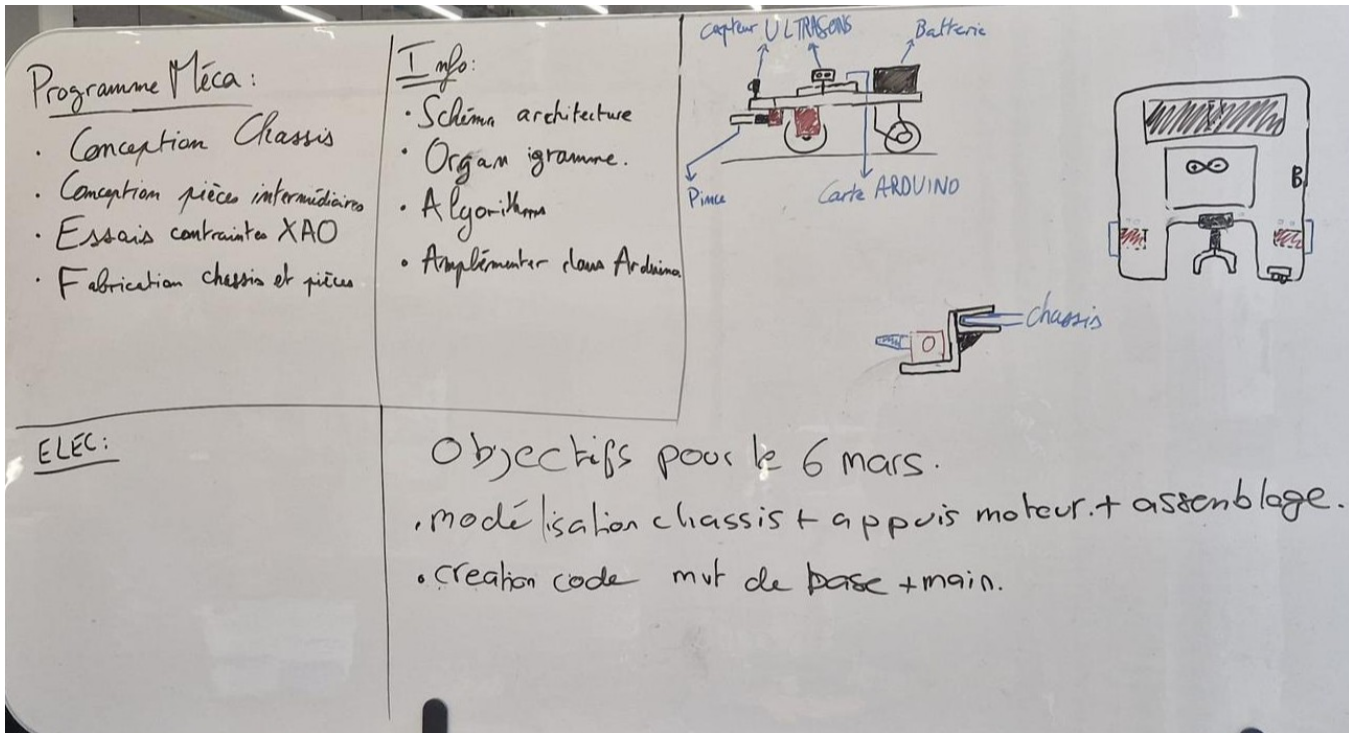 Programme Méca :
. Conception Chassis
. Conception pièces intermédiaires
. Essais contraintes XAO
. Fabrication chassis et pièces
Info :
. Schéma architecture
. Organigramme.
. Algorithme
. Amplémenter dans Arduino
capteur ULTRASONS
Batterie
Pince
Carte ARDUINO
B
chassis
ELEC :
Objectifs pour le 6 mars.
. modélisation chassis + appuis moteur. + assemblage.
. creation code mvt de base + main.